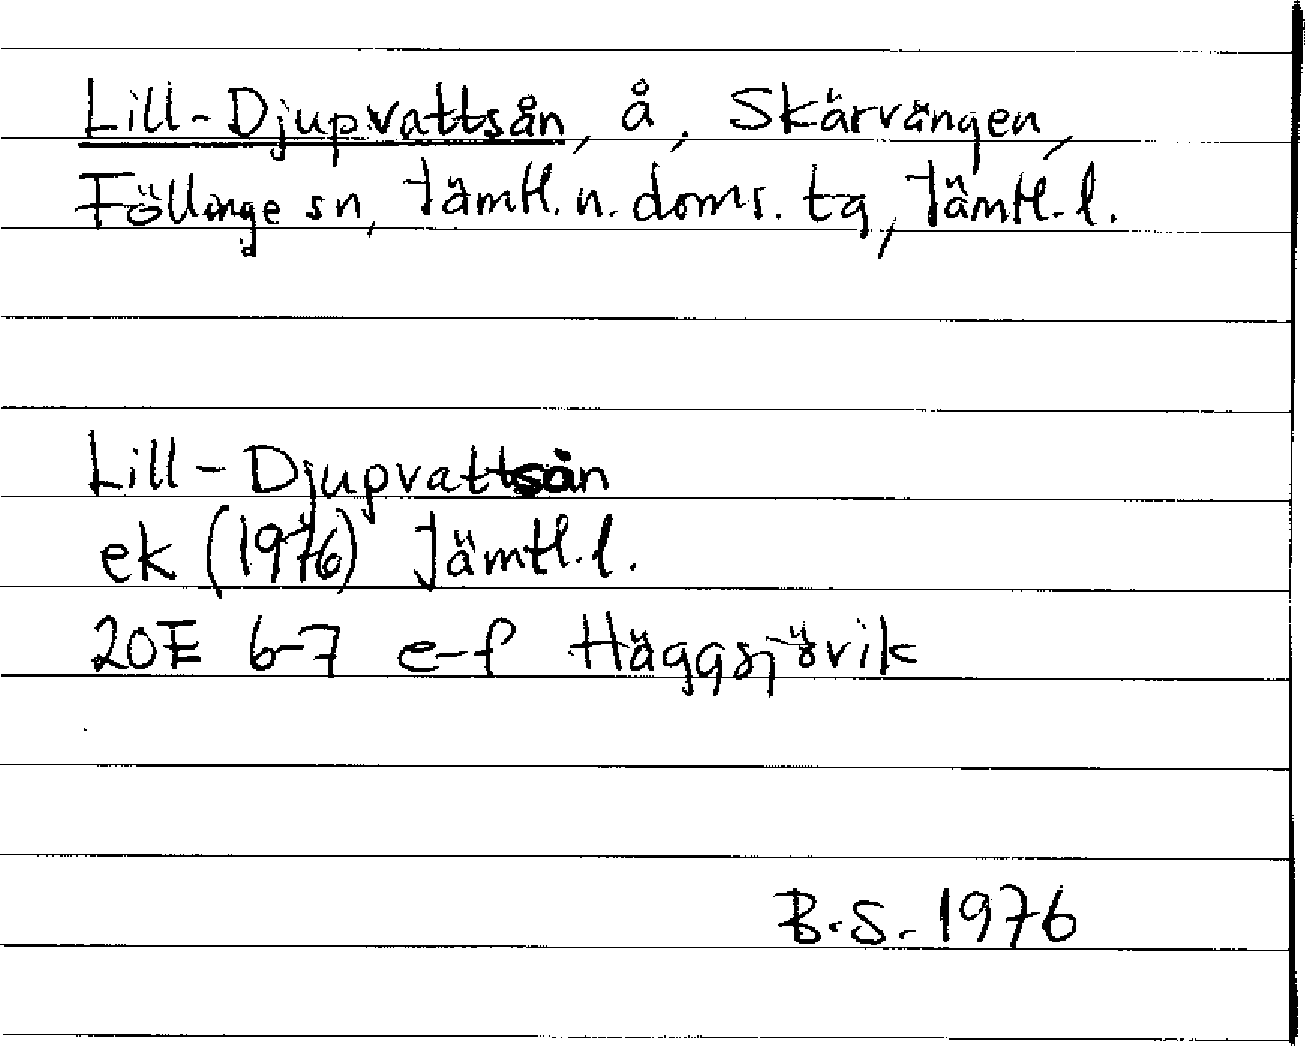 Lill-Djupvattsån, å, Skärvången,
Föllinge sn, Jämtl. n. doms. tg, Jämtl. l.
Lill-Djupvattsån
ek (1976) Jämtl. l.
20E 6-7 e-f Häggsjövik
B.S. 1976